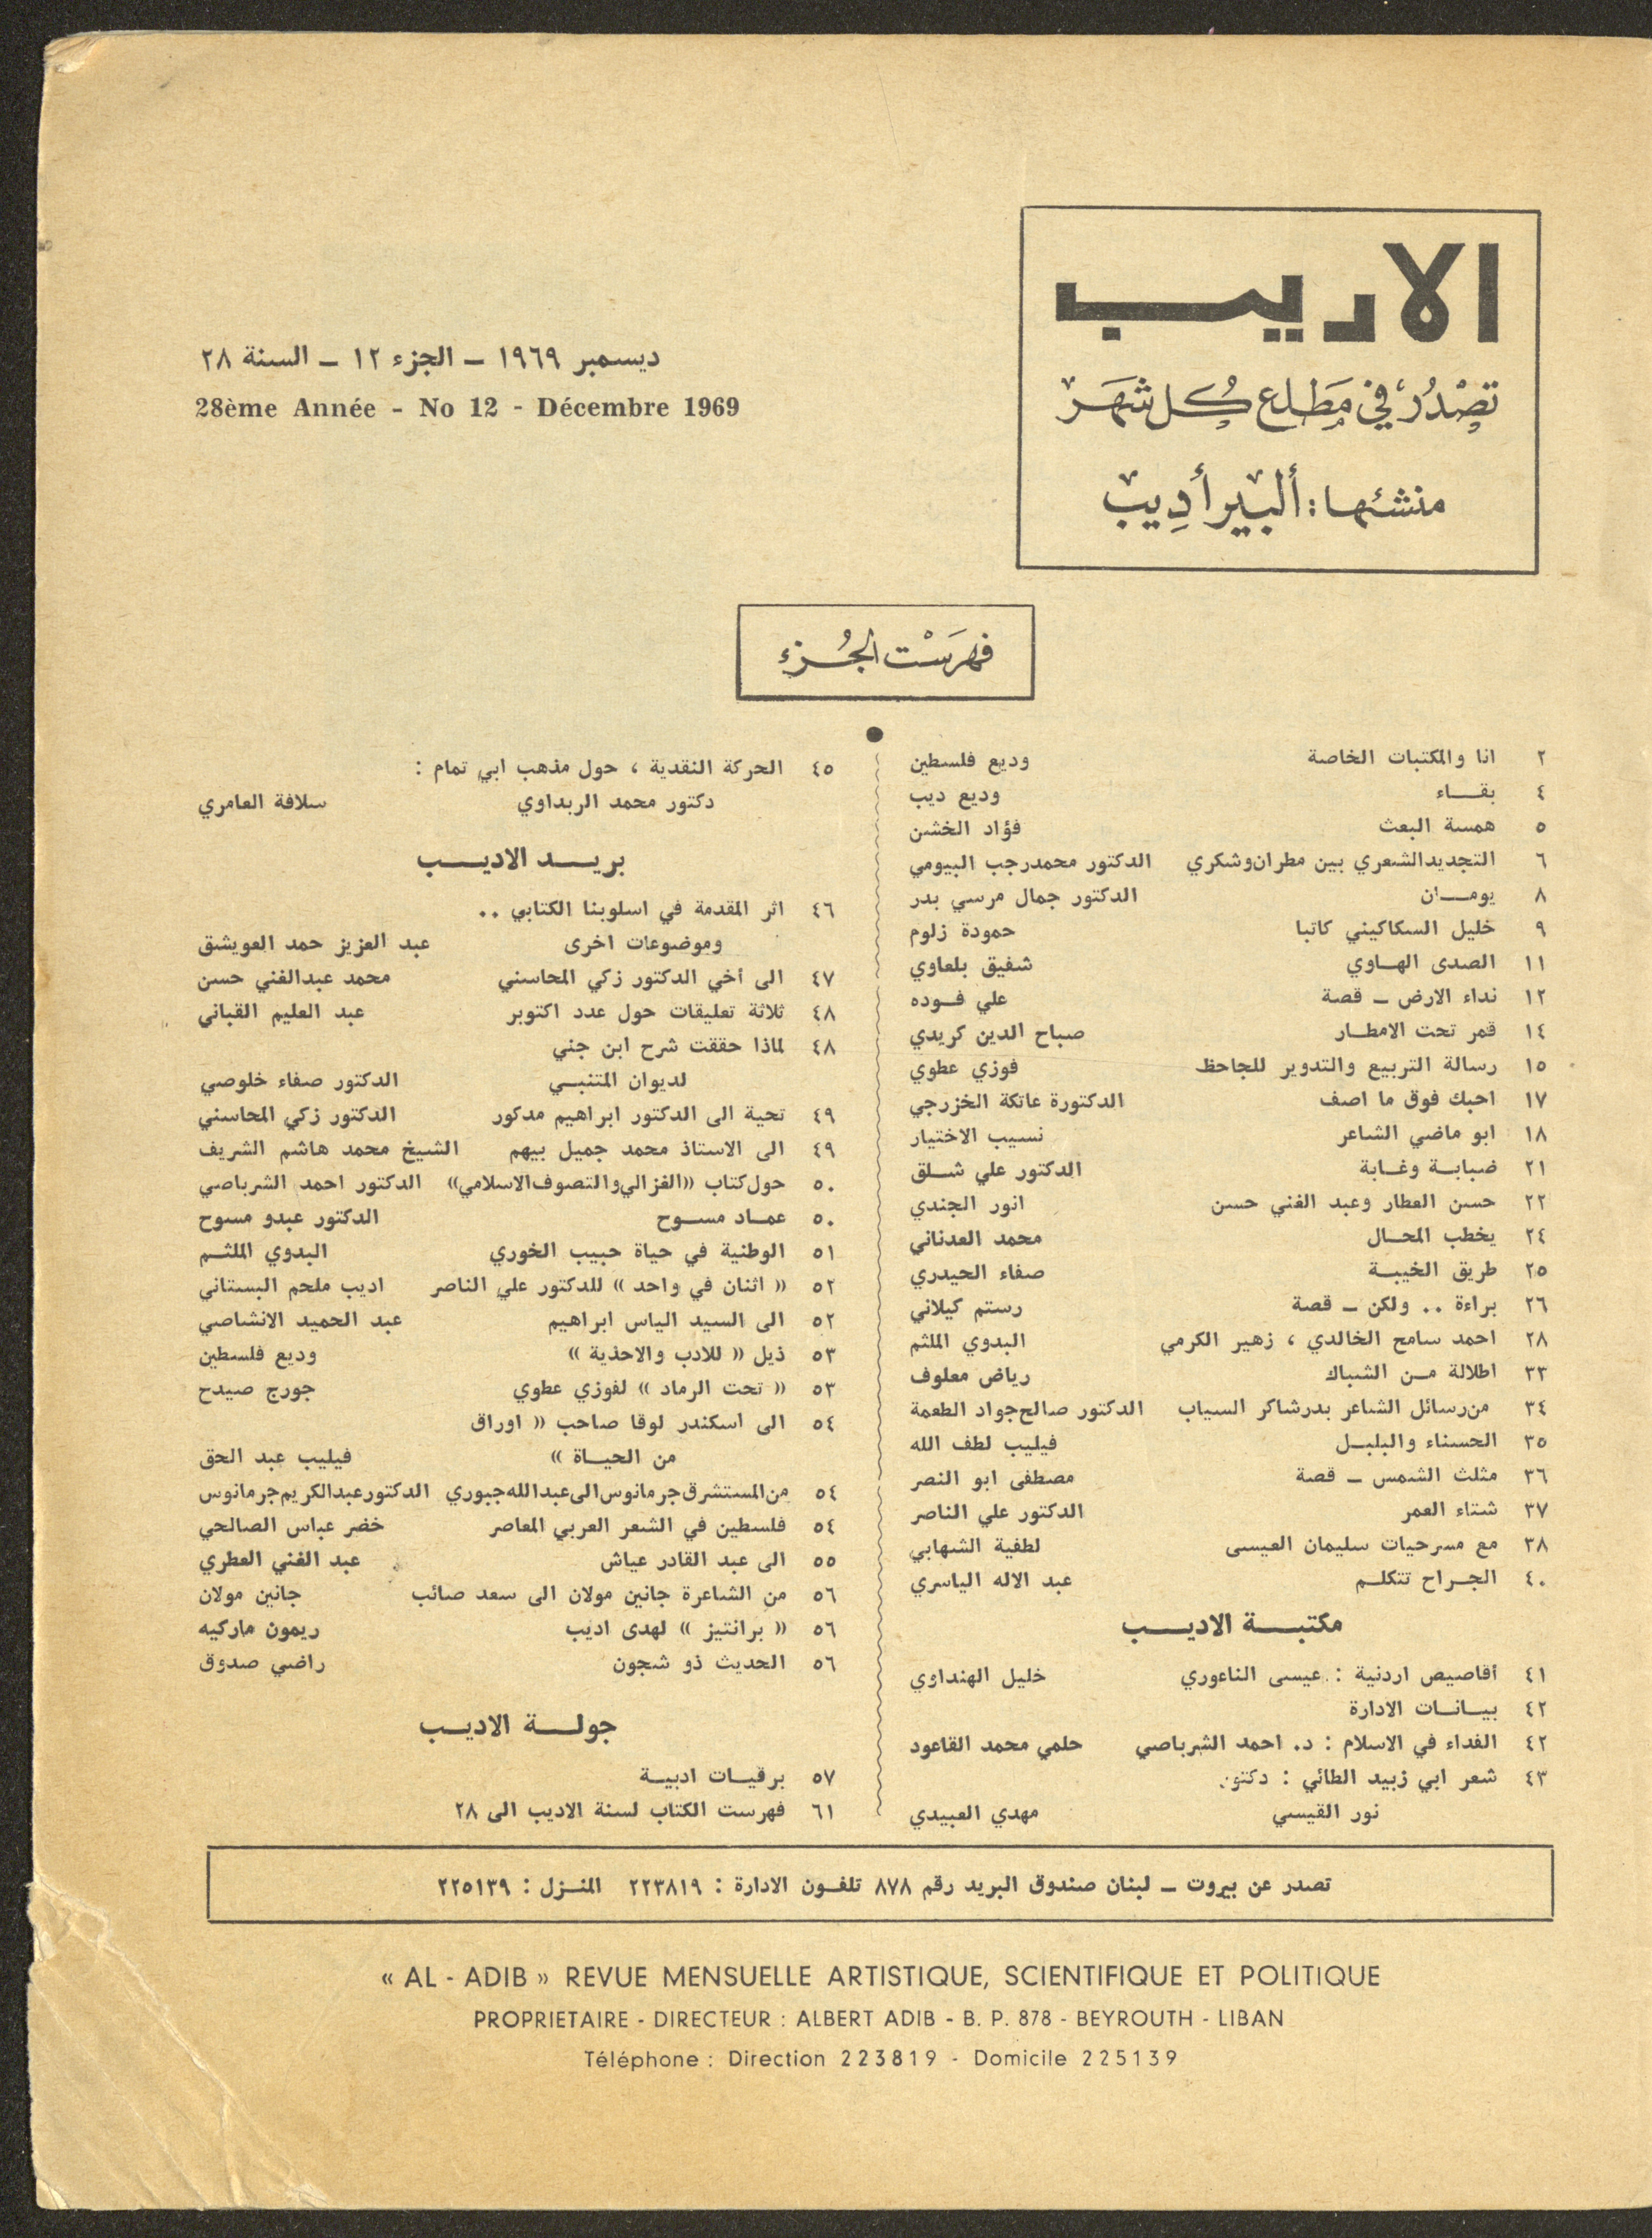 الاديب
تصدر في مطلع كل شهر
منشئها : ألبير أديب
ديسمبر ١٩٦٩ – الجزء ١٢ – السنة ٢٨
28ème Année - No 12 - Décembre 1969
فهرست الجزء
٢ انا والمكتبات الخاصة وديع فلسطين
٤ بقاء وديع ديب
٥ همسة البعث فؤاد الخشن
٦ التجديد الشعري بين مطران وشكري الدكتور محمد رجب البيومي
٨ يومان الدكتور جمال مرسي بدر
٩ خليل السكاكيني كاتبا حمودة زلوم
١١ الصدى الهاوي شفيق بلعاوي
١٢ نداء الارض – قصة علي فوده
١٤ قمر تحت الامطار صباح الدين كريدي
١٥ رسالة التربيع والتدوير للجاحظ فوزي عطوي
١٧ احبك فوق ما اصف الدكتورة عاتكة الخزرجي
١٨ ابو ماضي الشاعر نسيب الاختيار
٢١ ضبابة وغابة الدكتور علي شلق
٢٢ حسن العطار وعبد الغني حسن انور الجندي
٢٤ يخطب المحال محمد العدناني
٢٥ طريق الخيبة صفاء الحيدري
٢٦ براءة .. ولكن – قصة رستم كيلاني
٢٨ احمد سامح الخالدي ، زهير الكرمي البدوي الملثم
٣٣ اطلالة من الشباك رياض معلوف
٣٤ من رسائل الشاعر بدر شاكر السياب الدكتور صالح جواد الطعمة
٣٥ الحسناء والبلبل فيليب لطف الله
٣٦ مثلث الشمس – قصة مصطفى ابو النصر
٣٧ شتاء العمر الدكتور علي الناصر
٣٨ مع مسرحيات سليمان العيسى لطفية الشهابي
٤٠ الجراح تتكلم عبد الاله الياسري
مكتبة الاديب
٤١ أقاصيص اردنية : عيسى الناعوري خليل الهنداوي
٤٢ بيانات الادارة
٤٢ الفداء في الاسلام : د. احمد الشرباصي حلمي محمد القاعود
٤٣ شعر ابي زبيد الطائي : دكتور
نور القيسي مهدي العبيدي
٤٥ الحركة النقدية ، حول مذهب ابي تمام :
دكتور محمد الربداوي سلافة العامري
بريد الاديب
٤٦ اثر المقدمة في اسلوبنا الكتابي ..
وموضوعات اخرى عبد العزيز حمد العويشق
٤٧ الى أخي الدكتور زكي المحاسني محمد عبدالغني حسن
٤٨ ثلاثة تعليقات حول عدد اكتوبر عبد العليم القباني
٤٨ لماذا حققت شرح ابن جني
لديوان المتنبي الدكتور صفاء خلوصي
٤٩ تحية الى الدكتور ابراهيم مدكور الدكتور زكي المحاسني
٤٩ الى الاستاذ محمد جميل بيهم الشيخ محمد هاشم الشريف
٥٠ حول كتاب «الغزالي والتصوف الاسلامي» الدكتور احمد الشرباصي
٥٠ عماد مسوح الدكتور عبدو مسوح
٥١ الوطنية في حياة حبيب الخوري البدوي الملثم
٥٢ « اثنان في واحد » للدكتور علي الناصر اديب ملحم البستاني
٥٢ الى السيد الياس ابراهيم عبد الحميد الانشاصي
٥٣ ذيل « للادب والاحذية » وديع فلسطين
٥٣ « تحت الرماد » لفوزي عطوي جورج صيدح
٥٤ الى اسكندر لوقا صاحب « اوراق
من الحياة » فيليب عبد الحق
٥٤ من المستشرق جرمانوس الى عبدالله جبوري الدكتور عبدالكريم جرمانوس
٥٤ فلسطين في الشعر العربي المعاصر خضر عباس الصالحي
٥٥ الى عبد القادر عياش عبد الغني العطري
٥٦ من الشاعرة جانين مولان الى سعد صائب جانين مولان
٥٦ « برانتيز » لهدى اديب ريمون ماركيه
٥٦ الحديث ذو شجون راضي صدوق
جولة الاديب
٥٧ برقيات ادبية
٦١ فهرست الكتاب لسنة الاديب الى ٢٨
تصدر عن بيروت – لبنان صندوق البريد رقم ٨٧٨ تلفون الادارة : ٢٢٣٨١٩ المنزل : ٢٢٥١٣٩
« AL - ADIB » REVUE MENSUELLE ARTISTIQUE, SCIENTIFIQUE ET POLITIQUE
PROPRIETAIRE - DIRECTEUR : ALBERT ADIB - B. P. 878 - BEYROUTH - LIBAN
Téléphone : Direction 223819 - Domicile 225139